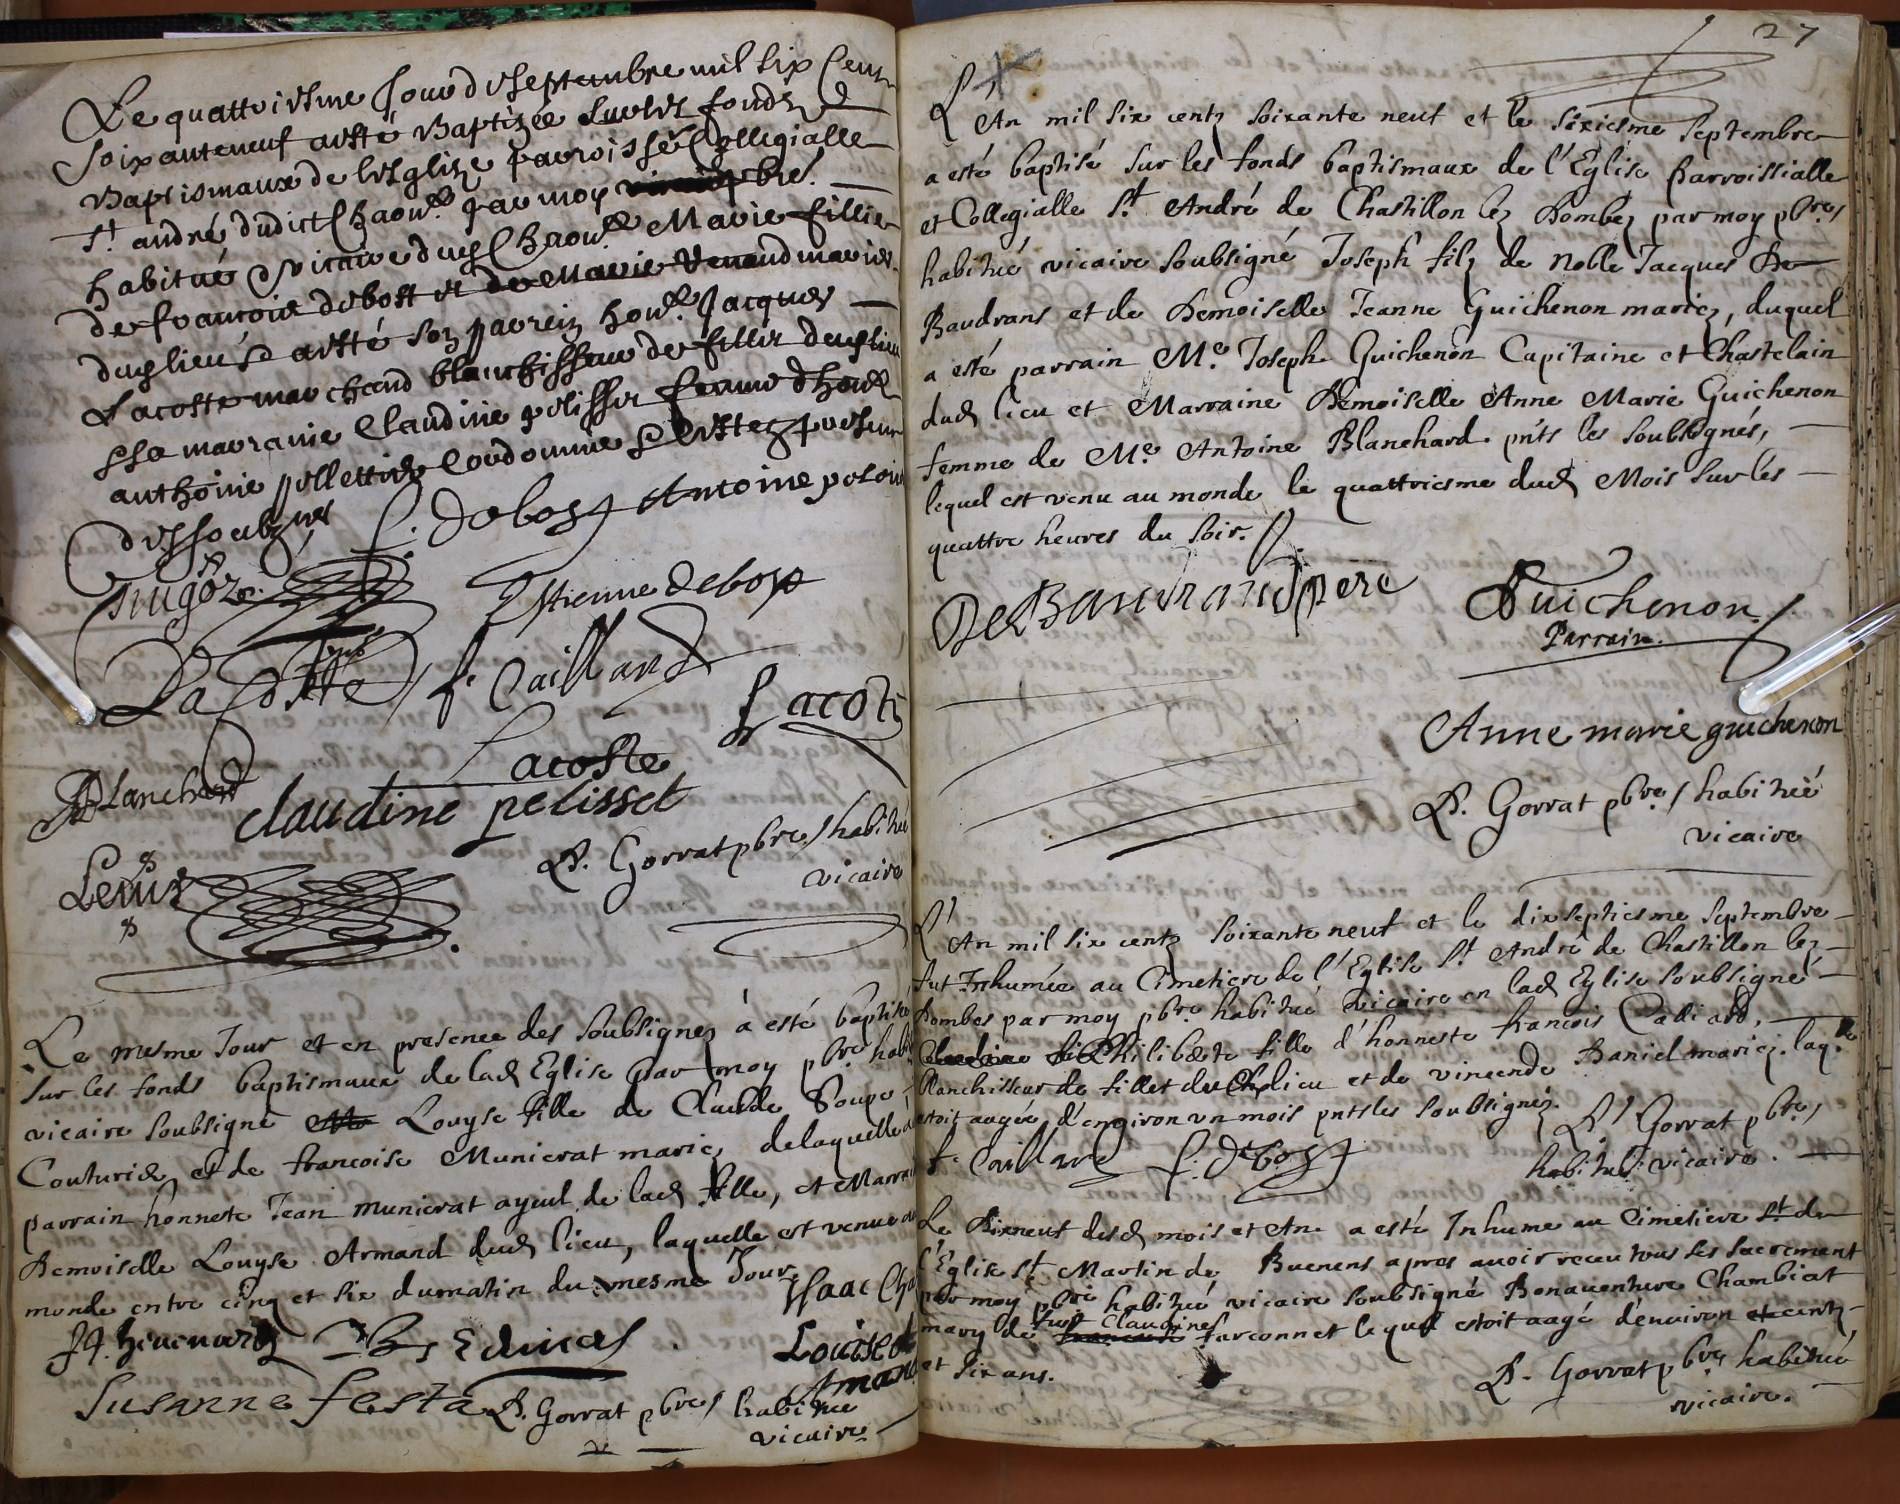 Le quattriesme Jour de septembre mil six Cent
soixanteneuf a esté Baptizée sur les fonds
Baptismaux de l'esglize parroisse Collegialle
St andré dudict Chaon par moy pbre
habitué vicaire dud Chaon Marie fillie
de francois debost et de Marie Venaud mariés
dud lieu a esté son parrein hon Jacques
Lacoste marchand blanchisseur de fillet dud lieu
& sa marraine Claudine pelisset femme d'hon
anthoine pollet
dessoubznés
f. debost Antoine
Estienne debost
La Coste f. Caillard
Lacoste
Lacoste
Blanchard
claudine pelisset
P. Gorrat pbre / habitué
vicaire
Le mesme Jour et en presence des soubsignez à esté baptisé
sur les fonds baptismaux de lad Eglise par moy pbre habi
vicaire soubsigné Louyse fille de Claude Soupe
Couturier, et de francoise Munierat mariez, delaquelle à
parrain honneste Jean munierat ayeul de lad fille, et Marra
Demoiselle Louyse Armand dud lieu, laquelle est venue au
monde entre cinq et six du matin du mesme Jour
Isaac Cha
Louise
Arman
Susanne festa P. Gorrat pbre / habitué
vicaire
27
L'An mil six centz soixante neuf et le sixiesme septembre
a esté baptisé sur les fonds baptismaux de l'Eglise parroissialle
et Collegialle St André de Chastillon lez Dombez par moy pbre /
habitué vicaire soubsigné Joseph filz de Noble Jacques De
Baudrans et de Demoiselle Jeanne Guichenon mariez, duquel
a esté parrain Me. Joseph Guichenon Capitaine et Chastelain
dud lieu et Marraine Demoiselle Anne Marie Guichenon
femme de Me. Antoine Blanchard pnts les soubsignés,
lequel est venu au monde le quattriesme dud Mois sur les
quattre heures du soir.
De Baudrand pere
Guichenon
Parrain.
Anne marie guichenon
P. Gorrat pbre / habitué
vicaire
L'An mil six centz soixante neuf et le dixseptiesme septembre
fut Inhumée au Cimetiere de l'Eglise St André de Chastillon lez
Dombes par moy pbre habitué vicaire en lad Eglise soubsigné
Claudine Philiberte fille d'honneste francois Caliard,
blanchisseur de fillet dud lieu et de vincende Daniel mariez. laqlle
estoit aagée d'environ un mois pnts les soubsignez.
P. Gorrat pbre /
f. Caillard f. debost
habitué vicaire.
Le Dixneuf desd mois et An a esté Inhume au Cimetiere St de
l'Eglise St Martin de Buenens apres avoir receu tous ses sacrement
par moy pbre habitué vicaire soubsigné Bonaventure Chambiat
mary de fust Claudine francoise farconnet lequel estoit aagé d'environ et centz
et six ans.
P. Gorrat pbre habitué
vicaire.